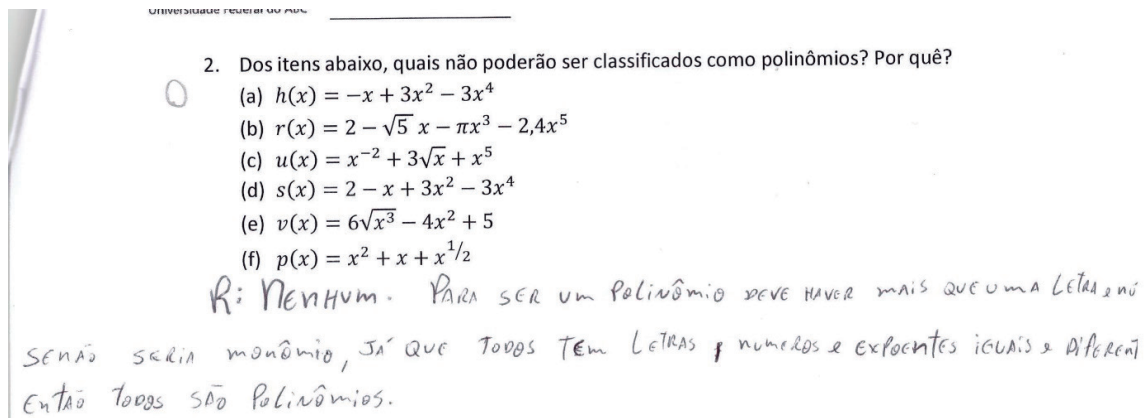 Universidade Federal do ABC
2. Dos itens abaixo, quais não poderão ser classificados como polinômios? Por quê?
(a) h(x) = −x + 3x² − 3x⁴
(b) r(x) = 2 − √5 x − πx³ − 2,4x⁵
(c) u(x) = x⁻² + 3√x + x⁵
(d) s(x) = 2 − x + 3x² − 3x⁴
(e) v(x) = 6√x³ − 4x² + 5
(f) p(x) = x² + x + x^1/2
R: NENHUM. PARA SER UM POLINÔMIO DEVE HAVER MAIS QUE UMA LETRA e nú
SENÃO SERIA monômio, JÁ QUE TODOS TEM LETRAS, numeros e EXPOENTES iGUAiS e DiFERENT
ENTÃO TODOS SÃO POLINÔMIOS.